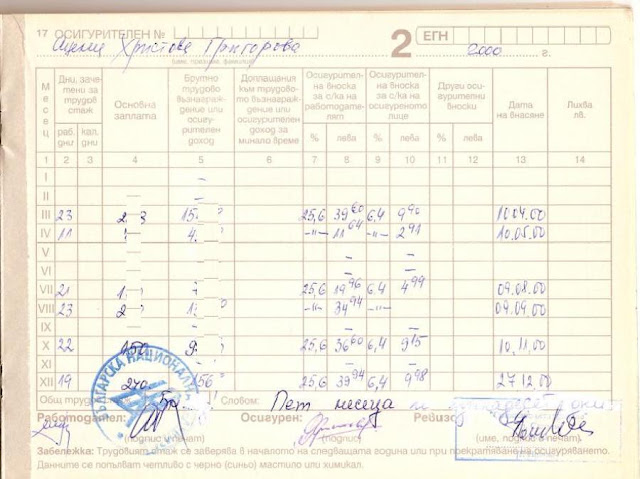 17 ОСИГУРИТЕЛЕН №
2 ЕГН
Христова Григорова 2000 г.
(име, презиме, фамилия)
Месец
Дни, зачетени за трудов стаж
раб. дни
кал. дни
Основна заплата
Брутно трудово възнаграждение или осигурителен доход
Доплащания към трудовото възнаграждение или осигурителен доход за минало време
Осигурителна вноска за с/ка на работодателят
% лева
Осигурителна вноска за с/ка на осигуреното лице
% лева
Други осигурителни вноски
%
Дата на внасяне
Ликва лв.
1 2 3 4 5 6 7 8 9 10 11 12 13 14
I –
II –
III 23 25,6 39 60 6,4 9 90 10.04.00
IV 11 –"– 11 64 –"– 2 91 10.05.00
V – –
VI – –
VII 21 25,6 19 96 6,4 4 99 09.08.00
VIII 23 –"– 34 94 –"– 09.09.00
IX – –
X 22 150 25,6 36 60 6,4 9 15 10.11.00
XI – –
XII 19 240 156 25,6 39 94 6,4 9 98 27.12.00
Общ труд Словом: Пет месеца и дни
Работодател: Осигурен: Ревизо
(подпис и печат) (подпис) (име, подпис и печат)
Забележка: Трудовият стаж се заверява в началото на следващата година или при прекратяване на осигуряването.
Данните се попълват четливо с черно (синьо) мастило или химикал.